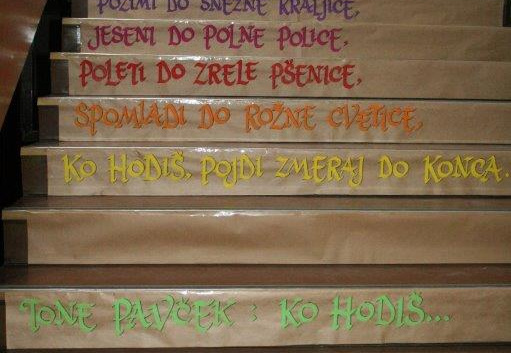 POZIMI DO SNEŽNE KRALJICE,
JESENI DO POLNE POLICE,
POLETI DO ZRELE PŠENICE,
SPOMLADI DO ROŽNE CVETICE,
KO HODIŠ, POJDI ZMERAJ DO KONCA.
TONE PAVČEK : KO HODIŠ...